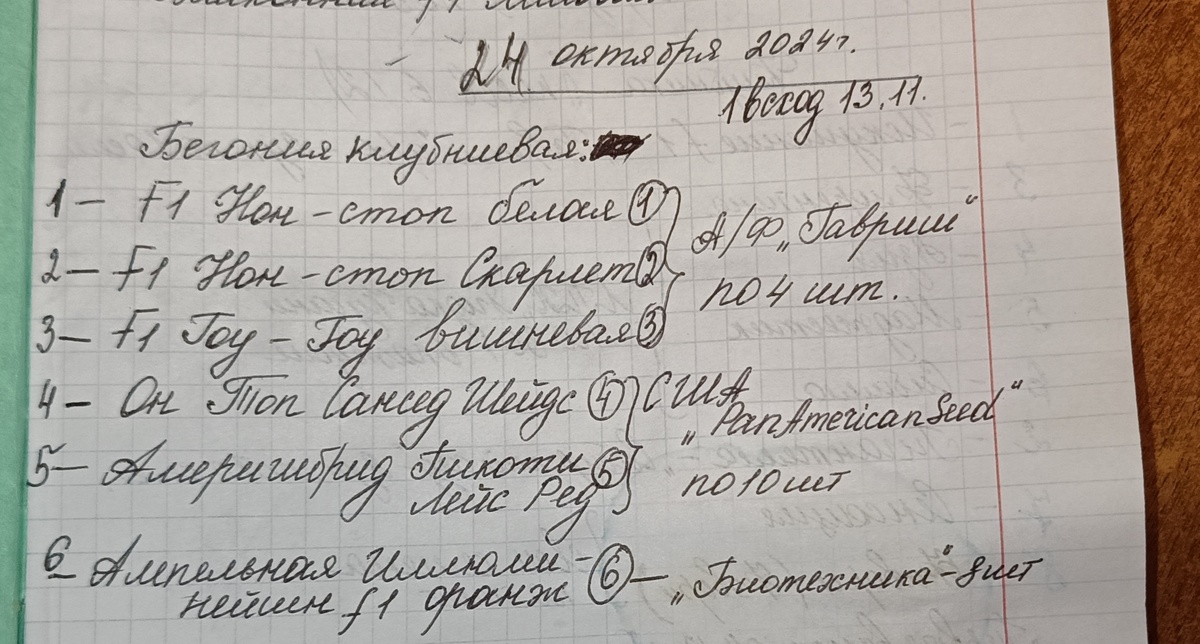 24 октября 2024г.
1 всход 13.11.
Бегония клубниевая:
1 – F1 Нон-стоп белая ①
2 – F1 Нон-стоп Скарлет ②
3 – F1 Гоу-Гоу вишневая ③
А/Ф „Гавриш"
по 4 шт.
4 – Он Топ Сансед Шейдс ④
5 – Америгибрид Пикоти ⑤
Лейс Ред
США
„PanAmerican Seed"
по 10 шт
6 – Ампельная Иллюми-
нейшн f1 оранж ⑥ – „Биотехника" - 8 шт